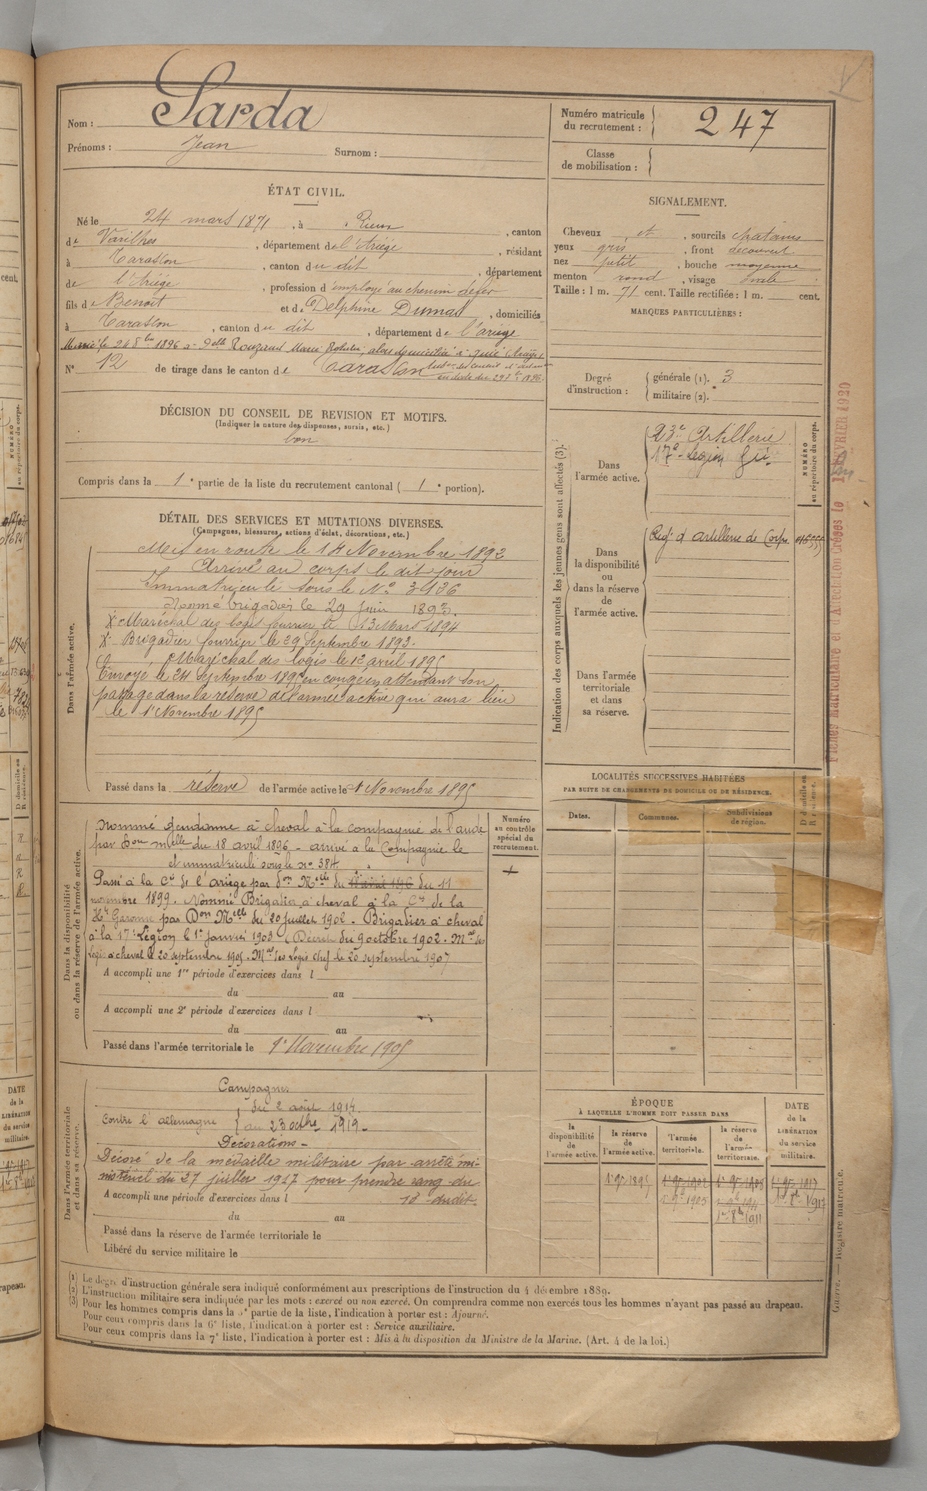 Nom : Sarda
Prénoms : Jean Surnom :
Numéro matricule du recrutement : 247
Classe de mobilisation :
ÉTAT CIVIL.
Né le 24 mars 1871, à Rieux, canton
de Varilhes, département de l'Ariège, résidant
à Tarascon, canton du dit, département
de l'Ariège, profession d'employé au chemin de fer
fils de Benoit et de Delphine Dumas, domiciliés
à Tarascon, canton du dit, département de l'ariège
Marié le 24 8bre 1896 à Delle Rouzaud Marie
N° 12 de tirage dans le canton de Tarascon
SIGNALEMENT.
Cheveux et, sourcils chatains
yeux gris, front découvert
nez petit, bouche moyenne
menton rond, visage ovale
Taille : 1 m. 71 cent. Taille rectifiée : 1 m. cent.
MARQUES PARTICULIÈRES :
Degré d'instruction : générale (1). 3
militaire (2).
DÉCISION DU CONSEIL DE REVISION ET MOTIFS.
(Indiquer la nature des dispenses, sursis, etc.)
bon
Compris dans la 1e partie de la liste du recrutement cantonal ( 1e portion).
Indication des corps auxquels les jeunes gens sont affectés (3).
NUMÉRO au répertoire du corps.
Dans l'armée active.
23e Artillerie
17e Legion
Dans la disponibilité ou dans la réserve de l'armée active.
Régt d'artillerie de Corps
Dans l'armée territoriale et dans sa réserve.
DÉTAIL DES SERVICES ET MUTATIONS DIVERSES.
(Campagnes, blessures, actions d'éclat, décorations, etc.)
Dans l'armée active.
Mis en route le 14 Novembre 1892
Arrivé au corps le dit jour
Immatriculé sous le N° 3136
Nommé brigadier le 29 Juin 1893.
X Maréchal des logis fourrier le 13 Mars 1894
X Brigadier fourrier le 29 Septembre 1893.
Maréchal des logis le 1er avril 1895
Envoyé le 24 septembre 1895 en congé en attendant son
passage dans la réserve de l'armée active qui aura lieu
le 1er Novembre 1895
Passé dans la réserve de l'armée active le 1er Novembre 1895
Dans la disponibilité ou dans la réserve de l'armée active.
Numéro au contrôle spécial du recrutement.
Nommé gendarme à cheval à la compagnie de l'aude
par Don mlle du 18 avril 1896 - arrivé à la Compagnie le
et immatriculé sous le no 384
Passé à la Cie de l'ariège par don Mlle du 18 avril 1896 du 11
novembre 1899. Nommé Brigadier à cheval à la Cie de la
Hte Garonne par Don Mlle du 20 juillet 1902 - Brigadier à cheval
à la 17e Légion le 1er Janvier 1903 (Décret du 9 octobre 1902. Mal des
Logis à cheval le 20 septembre 1905. Mal des Logis chef le 20 septembre 1907
A accompli une 1re période d'exercices dans l
du au
A accompli une 2e période d'exercices dans l
du au
Passé dans l'armée territoriale le 1er Novembre 1905
Dans l'armée territoriale et dans sa réserve.
Campagnes
Contre l'allemagne du 2 août 1914
au 23 octbre 1919-
Décorations -
Décoré de la médaille militaire par arrêté mi-
nistériel du 27 juillet 1917 pour prendre rang du
A accompli une période d'exercices dans l 18 dudit.
du au
Passé dans la réserve de l'armée territoriale le
Libéré du service militaire le
LOCALITÉS SUCCESSIVES HABITÉES
PAR SUITE DE CHANGEMENTS DE DOMICILE OU DE RÉSIDENCE.
Dates. Communes. Subdivisions de région. D domicile ou R résidence.
ÉPOQUE
À LAQUELLE L'HOMME DOIT PASSER DANS
la disponibilité de l'armée active. la réserve de l'armée active. l'armée territoriale. la réserve de l'armée territoriale.
DATE de la LIBÉRATION du service militaire.
1er 9bre 1895 1er 9bre 1905 1er 9bre 1917
Fiches Matriculaire et d'Affection Créées le FÉVRIER 1920
Guerre. — Registre matricule.
(1) Le degré d'instruction générale sera indiqué conformément aux prescriptions de l'instruction du 4 décembre 1889.
(2) L'instruction militaire sera indiquée par les mots : exercé ou non exercé. On comprendra comme non exercés tous les hommes n'ayant pas passé au drapeau.
(3) Pour les hommes compris dans la 5e partie de la liste, l'indication à porter est : Ajourné.
Pour ceux compris dans la 6e liste, l'indication à porter est : Service auxiliaire.
Pour ceux compris dans la 7e liste, l'indication à porter est : Mis à la disposition du Ministre de la Marine. (Art. 4 de la loi.)